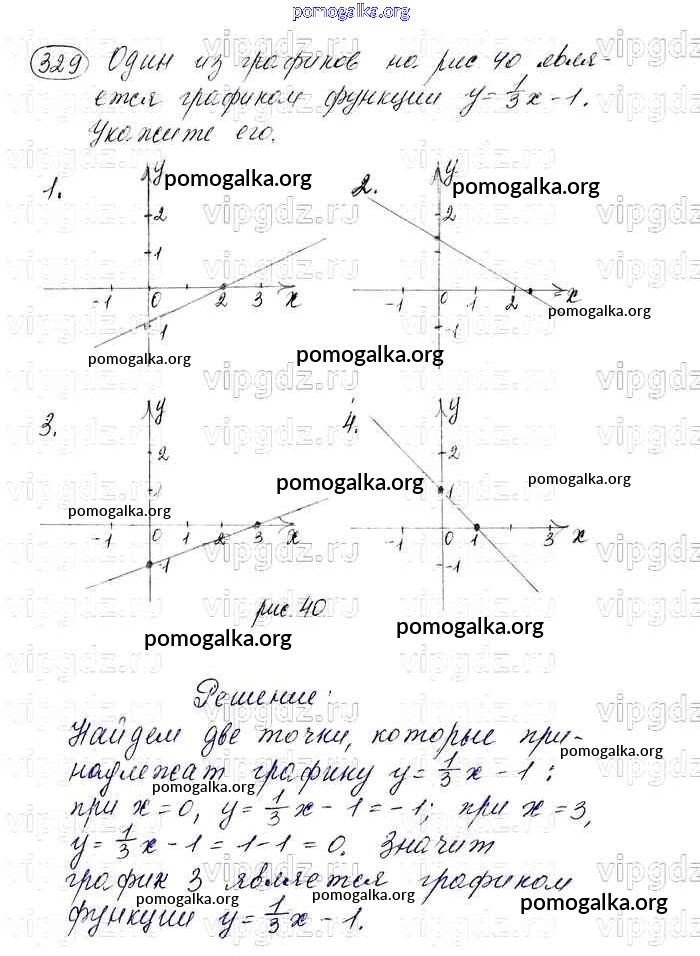 pomogalka.org
329 Один из графиков на рис 40 явля-
ется графиком функции y=1/3x-1.
Укажите его.
1. y pomogalka.org 2. y pomogalka.org
2 2
1
-1 0 2 3 x -1 0 1 2 x
-1 -1 pomogalka.org
pomogalka.org pomogalka.org
3. y 4. y
2 2
pomogalka.org pomogalka.org
1 1
pomogalka.org
-1 0 1 2 3 x -1 0 1 3 x
-1 -1
рис. 40
pomogalka.org pomogalka.org
Решение:
Найдем две точки, которые при-
pomogalka.org
надлежат графику y=1/3x-1:
pomogalka.org
при x=0, y=1/3x-1=-1; при x=3,
y=1/3x-1=1-1=0. Значит
график 3 является графиком
pomogalka.org pomogalka.org pomogalka.org
функции y=1/3x-1.
vipgdz.ru